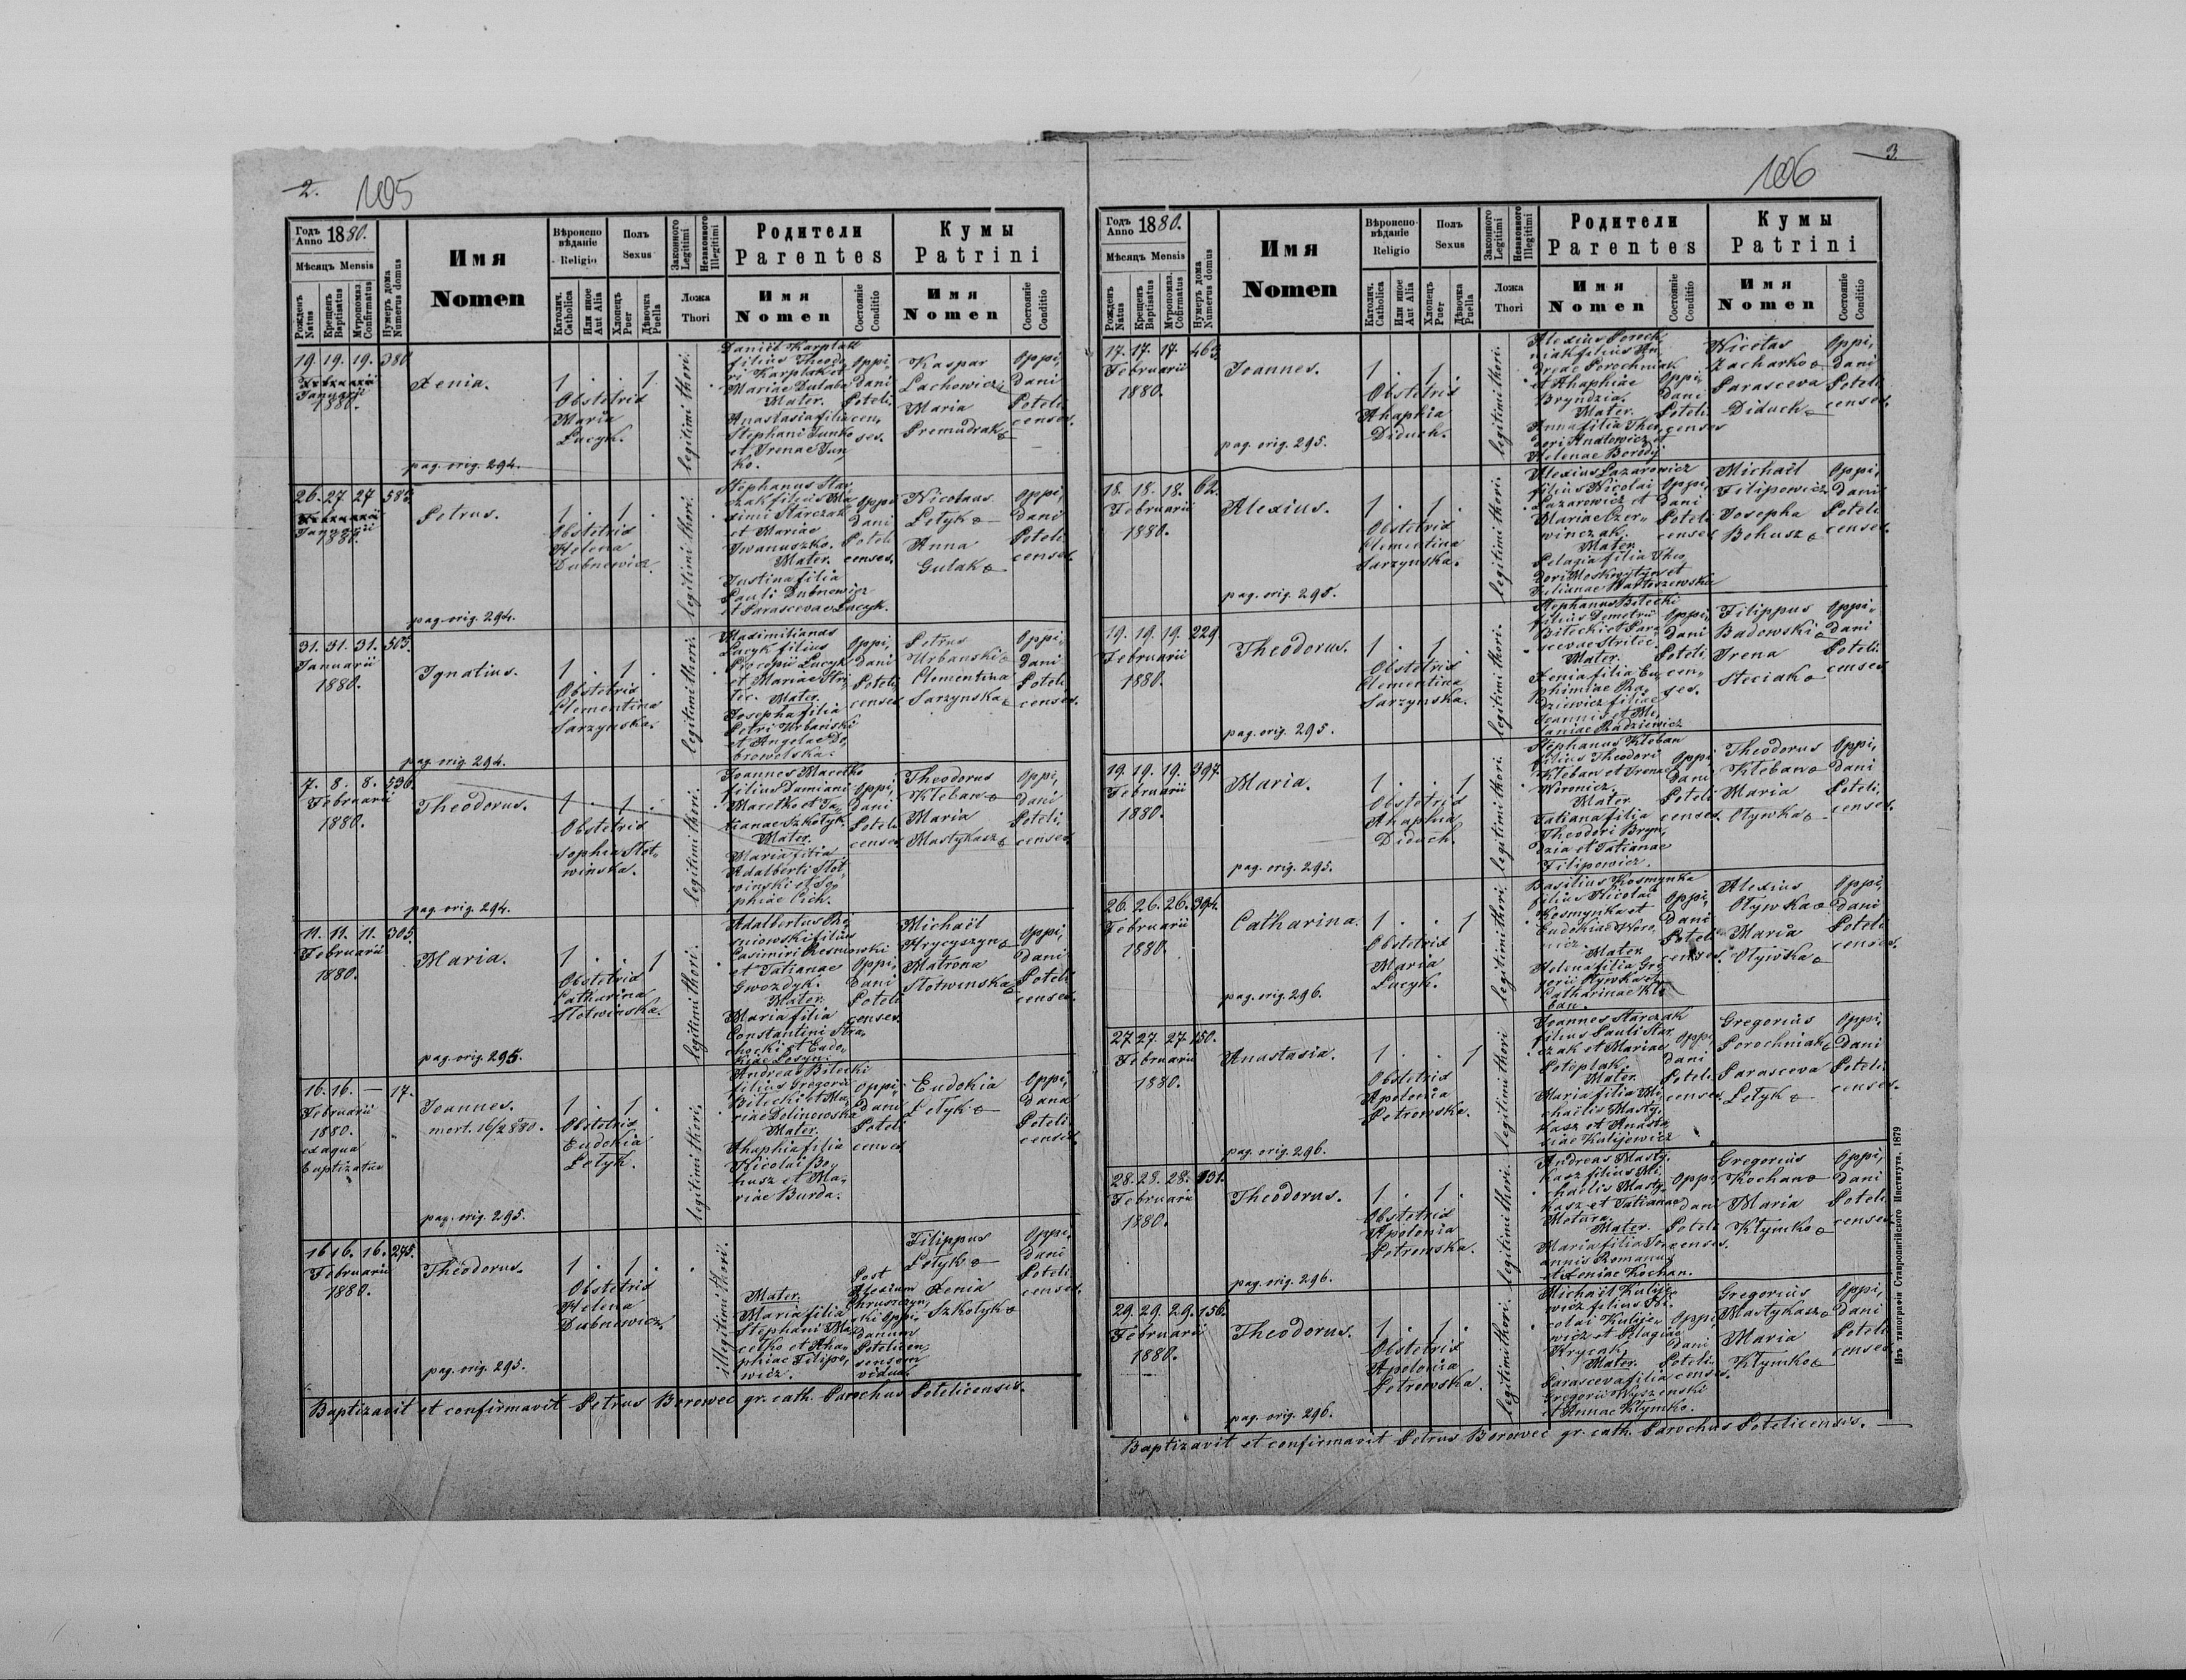 2.
105
Годъ Anno 1880.
Мѣсяцъ Mensis
Рожденъ Natus
Крещенъ Baptisatus
Мѵропомаз. Confirmatus
Нумеръ дома Numerus domus
Имя
Nomen
Вѣроисповѣданіе
Religio
Католич. Catholica
Или иное Aut Alia
Полъ
Sexus
Хлопецъ Puer
Дѣвочка Puella
Законного Legitimi
Незаконного Illegitimi
Ложа
Thori
Родители
Parentes
Имя
Nomen
Состояніе Conditio
Кумы
Patrini
Имя
Nomen
Состояніе Conditio
19. 19. 19. 380.
Januarii
1880.
Xenia.
1 . . 1
Obstetrix
Maria
Lacyk.
legitimi thori.
Daniel Karplak
filius Theodo
ri Karplak et
Mariae
Mater.
Anastasia filia
Stephani Junko
et Irenae Jun
ko.
Oppi,
dani
Poteli
cen,
ses.
Kaspar
Lachowicz
Maria
Premudrak
Oppi,
dani
Poteli
censes.
pag. orig. 294.
26. 27. 27. 585.
Januarii
1880.
Petrus.
1 . 1 .
Obstetrix
Helena
Dubnewicz.
legitimi thori.
Stephanus Star,
czak filius Ma
ximi Starczak
et Mariae
Iwanuszko.
Mater.
Justina filia
Pauli Dubnewicz
et Parascevae Lacyk.
Oppi
dani
Poteli
censes.
Nicolaus
Łotyk
Anna
Gulak
Oppi,
dani
Poteli
censes.
pag. orig. 294.
31. 31. 31. 503.
Januarii
1880.
Ignatius.
1 . 1 .
Obstetrix
Clementina
Sarzynska.
legitimi thori.
Maximilianus
Lacyk filius
Procopii Lacyk
et Mariae Stri,
tec. Mater.
Josepha filia
Petri Urbanski
et Angelae Do,
browolska.
Oppi,
dani
Poteli
censes.
Petrus
Urbanski
Clementina
Sarzynska
Oppi,
dani
Poteli
censes.
pag. orig. 294.
7. 8. 8. 536.
Februarii
1880.
Theodorus.
1 . 1 .
Obstetrix
Sophia Słot,
winska.
legitimi thori.
Joannes Macetko
filius Damiani
Macetko et Ta,
tianae Szkołyk.
Mater.
Maria filia
Adalberti Słot
winski et So,
phiae Cich.
Oppi,
dani
Poteli
censes.
Theodorus
Kłeban
Maria
Mastykasz
Oppi,
dani
Poteli,
censes.
pag. orig. 294.
11. 11. 11. 305.
Februarii
1880.
Maria.
1 . . 1
Obstetrix
Catharina
Słotwinska.
legitimi thori.
Adalbertus
filius
Casimiri
et Tatianae
Gwozdyk.
Mater.
Maria filia
Constantini
et Eudo,
kiae
Oppi,
dani
Poteli
censes.
Michaël
Hrycyszyn
Matrona
Słotwinska
Oppi,
dani
Poteli
censes.
pag. orig. 295.
16. 16. — 17.
Februarii
1880.
ex aqua
baptizatus
Joannes.
mort. 16/2 880.
1 . 1 .
Obstetrix
Eudokia
Łotyk.
legitimi thori.
Andreas Bilecki
filius Gregorii
Bilecki et Ma,
riae Dolinowska
Mater.
Ahaphia filia
Nicolai Bo,
husz et Ma,
riae Burda.
Oppi,
dani
Poteli
censes
Eudokia
Łotyk
Oppi,
dana
Poteli
censis.
pag. orig. 295.
16 16. 16. 245.
Februarii
1880.
Theodorus.
1 . 1 .
Obstetrix
Helena
Dubnewicz.
illegitimi thori.
Mater.
Maria filia
Stephani Ma,
cetko et Aha,
phiae Filipo,
wicz.
Post
Alexium
danum
Potelicen,
sensem
vidua.
Filippus
Łotyk
Xenia
Szkołyk
Oppi,
dani
Poteli
censes.
pag. orig. 295.
Baptizavit et confirmavit Petrus Borowec gr. cath. Parochus Potelicensis.
3.
106
Годъ Anno 1880.
Мѣсяцъ Mensis
Рожденъ Natus
Крещенъ Baptisatus
Мѵропомаз. Cofirmatus
Нумеръ дома Numerus domus
Имя
Nomen
Вѣроисповѣданіе
Religio
Католич. Catholica
Или иное Aut Alia
Полъ
Sexus
Хлопецъ Puer
Дѣвочка Puella
Законного Legitimi
Незаконного Illegitimi
Ложа
Thori
Родители
Parentes
Имя
Nomen
Состояніе Conditio
Кумы
Patrini
Имя
Nomen
Состояніе Conditio
17. 17. 17. 463.
Februarii
1880.
Joannes.
1 . 1 .
Obstetrix
Ahaphia
Diduch.
legitimi thori.
Alexius Poroch,
niak filius An,
dreae Porochniak
et Ahaphiae
Bryndzia.
Mater.
Anna filia Theo,
dori Anatowicz et
Helenae Borodij
Oppi,
dani
Poteli
censes
Nicetas
Zacharko
Parasceva
Diduch
Oppi,
dani
Poteli
censes.
pag. orig. 295.
18. 18. 18. 62.
Februarii
1880.
Alexius.
1 . 1 .
Obstetrix
Clementina
Sarzynska.
legitimi thori.
Alexius Lazarowicz
filius Nicolai
Lazarowicz et
Mariae Czer,
winczak.
Mater.
Pelagia filia Theo,
dori Moskwityn et
Julianae
Oppi,
dani
Poteli
censes
Michaël
Filipowicz
Josepha
Bohusz
Oppi,
dani
Poteli
censes.
pag. orig. 295.
19. 19. 19. 229.
Februarii
1880.
Theodorus.
1 . 1 .
Obstetrix
Clementina
Sarzynska.
legitimi thori.
Stephanus Bilecki
filius Demetrii
Bilecki et Para,
scevae Stritec.
Mater.
Xenia filia Eu,
phimiae Ra,
dziewicz filiae
Joannis et Me,
laniae Radziewicz
Oppi,
dani
Poteli
cen,
ses.
Filippus
Badowski
Irena
Steciak
Oppi,
dani
Poteli
censes
pag. orig. 295.
19. 19. 19. 397.
Februarii
1880.
Maria.
1 . . 1
Obstetrix
Ahaphia
Diduch.
legitimi thori.
Stephanus Kłeban
filius Theodori
Kłeban et Irenae
Woronicz.
Mater
Tatiana filia
Theodori Bryn,
dzia et Tatianae
Filipowicz.
Oppi,
dani
Poteli
censes.
Theodorus
Kłeban
Maria
Oływka
Oppi,
dani
Poteli,
censes.
pag. orig. 295.
26. 26. 26. 394.
Februarii
1880.
Catharina.
1 . . 1
Obstetrix
Maria
Lacyk.
legitimi thori.
Basilius Kosmynka
filius Nicolai
Kosmynka et
Eudokiae Woro
nicz.
Mater
Helena filia Gre
gorii Oływka et
Catharinae Kłe
ban.
Oppi,
dani
Poteli
censes.
Alexius
Oływka
Maria
Oływka
Oppi,
dani
Poteli
censes.
pag. orig. 296.
27 27. 27. 150.
Februarii
1880.
Anastasia.
1 . . 1
Obstetrix
Apolonia
Petrowska.
legitimi thori
Joannes Starczak
filius Pauli Star
czak et Mariae
Poteplak.
Mater.
Maria filia Mi,
chaëlis Masty,
kasz et Anasta
siae Kulijewicz
Oppi,
dani
Poteli
censes
Gregorius
Porochniak
Parasceva
Łotyk
Oppi,
dani
Poteli
censes.
pag. orig. 296.
28. 28. 28. 131.
Februarii
1880.
Theodorus.
1 . 1 .
Obstetrix
Apolonia
Petrowska.
legitimi thori.
Andreas Masty,
kasz filius Mi,
chaëlis Masty,
kasz et Tatianae
Motura.
Mater.
Maria filia Jo,
annis Romanus
et Xeniae Kochan.
Oppi,
dani
Poteli
censes.
Gregorius
Kochan
Maria
Kłymko
Oppi,
dani
Poteli
censes.
pag. orig. 296.
29. 29. 29. 156.
Februarii
1880.
Theodorus.
1 . 1 .
Obstetrix
Apolonia
Petrowska.
legitimi thori.
Michaël Kulije
wicz filius Ni,
colai Kulije,
wicz et Pelagiae
Krycak
Mater.
Parasceva filia
Gregorii Wyszenski
et Annae Kłymko.
Oppi,
dani
Poteli
censes.
Gregorius
Mastykasz
Maria
Kłymko
Oppi,
dani
Poteli
censes.
pag. orig. 296.
Baptizavit et confirmavit Petrus Borowec gr. cath. Parochus Potelicensis.
Изъ типографіи Ставропигійского Института, 1879